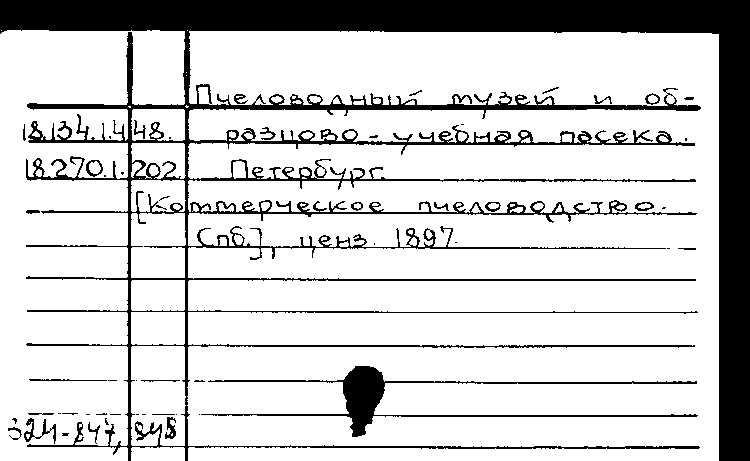 Пчеловодный музей и об-
18.134.1.448. разцово-учебная пасека.
18.270.1.202 Петербург.
[Коммерческое пчеловодство.
Спб.], ценз. 1897.
324-847, 848